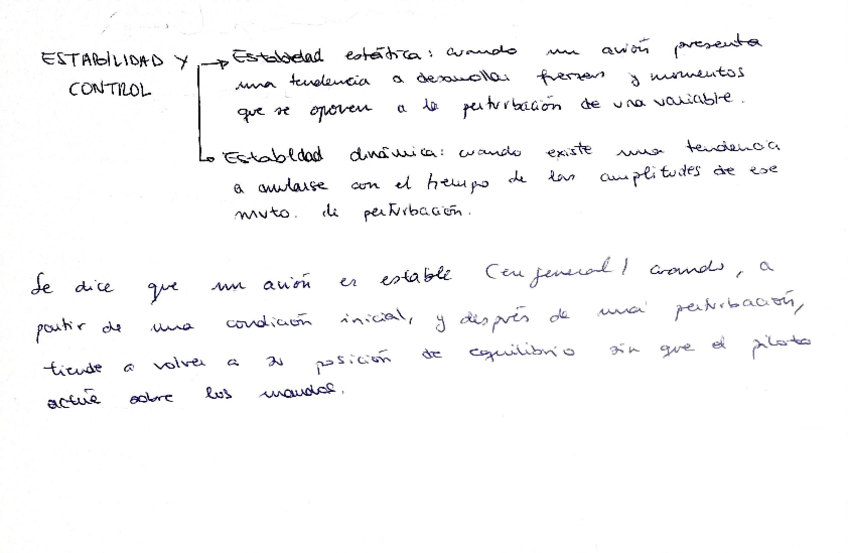 ESTABILIDAD Y
CONTROL
Estabilidad estática: cuando un avión presenta
una tendencia a desarrollar fuerzas y momentos
que se oponen a la perturbación de una variable.
Establdad dinámica: cuando existe una tendencia
a anularse con el tiempo de las amplitudes de ese
mvto. de perturbación.
Se dice que un avión es estable (en general) cuando, a
partir de una condición inicial, y después de una perturbación,
tiende a volver a su posición de equilibrio sin que el piloto
actúe sobre los mandos.